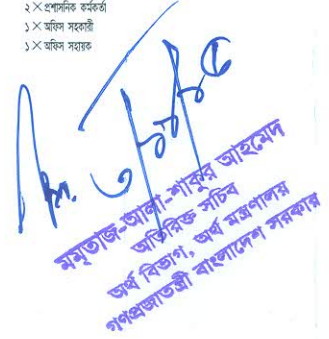 ২ × প্রশাসনিক কর্মকর্তা
১ × অফিস সহকারী
১ × অফিস সহায়ক
মমতাজ-আলা-শাকুর আহমেদ
অতিরিক্ত সচিব
অর্থ বিভাগ, অর্থ মন্ত্রণালয়
গণপ্রজাতন্ত্রী বাংলাদেশ সরকার